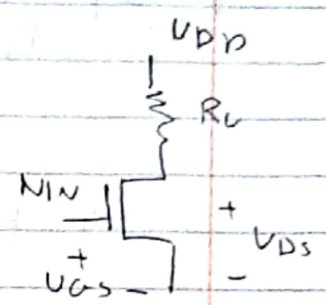 VDD
RL
VIN
+
VDS
+
VGS -
-